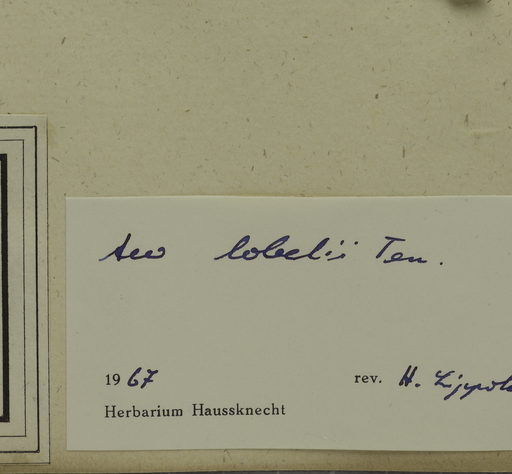 lobelii Ten.
1967 rev. H. Lippold
Herbarium Haussknecht